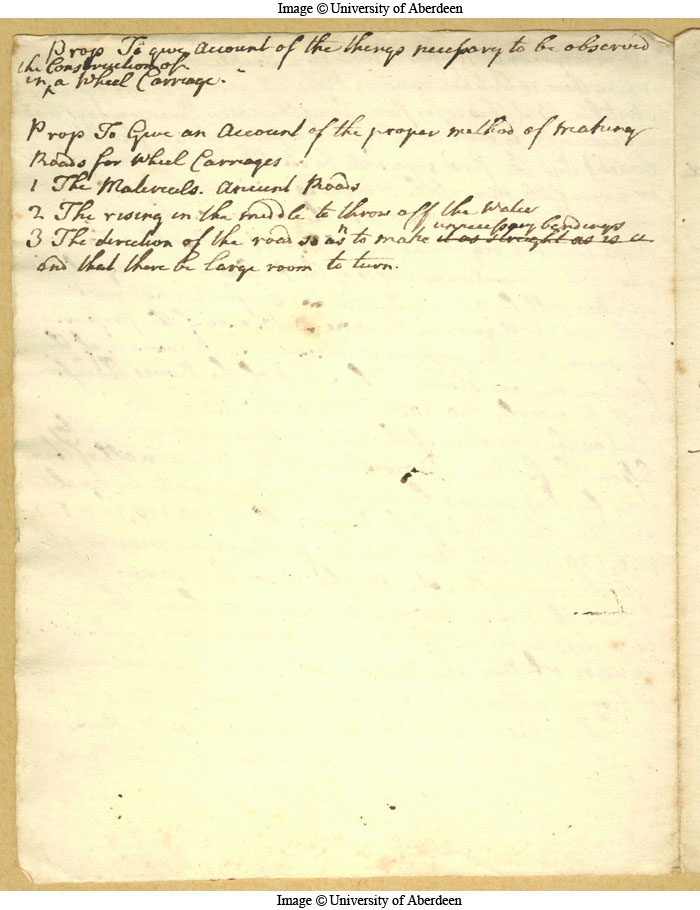 Image © University of Aberdeen
Prop To give Account of the things necessary to be observed
the Construction of
in a Wheel Carriage.
Prop To Give an Account of the proper method of making
Roads for Wheel Carriages
1 The Materials. Ancient Roads
2 The rising in the middle to throw off the Water
unnecessary bendings
3 The direction of the road so as n to make it as streight as is
and that there be large room to turn.
Image © University of Aberdeen